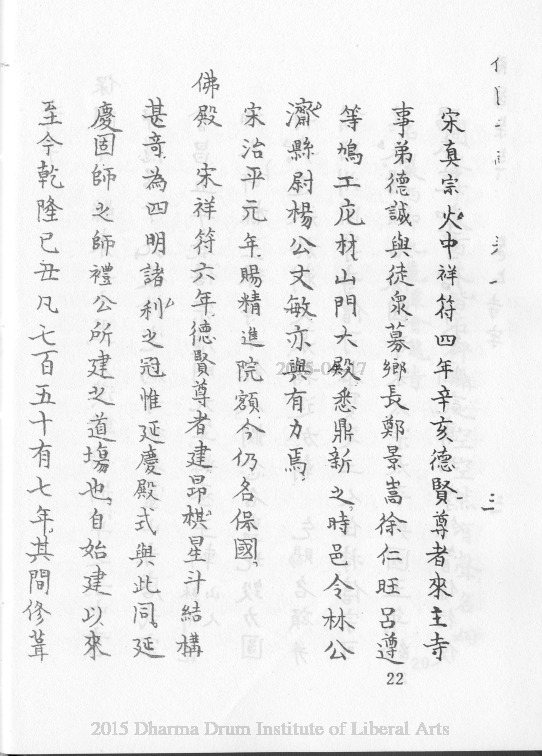 宋真宗火中祥符四年辛亥德賢尊者來主寺
事弟德誠與徒衆募鄉長鄭景嵩徐仁旺呂遵
等鳩工庀材山門大殿悉鼎新之時邑令林公
濟縣尉楊公文敏亦與有力焉
宋治平元年賜精進院額今仍名保國
佛殿 宋祥符六年德賢尊者建昂栱星斗結構
甚竒為四明諸利之冠惟延慶殿式與此同延
慶固師之師禮公所建之道塲也自始建以來
至今乾隆己丑凡七百五十有七年其間修葺
22
2015 Dharma Drum Institute of Liberal Arts